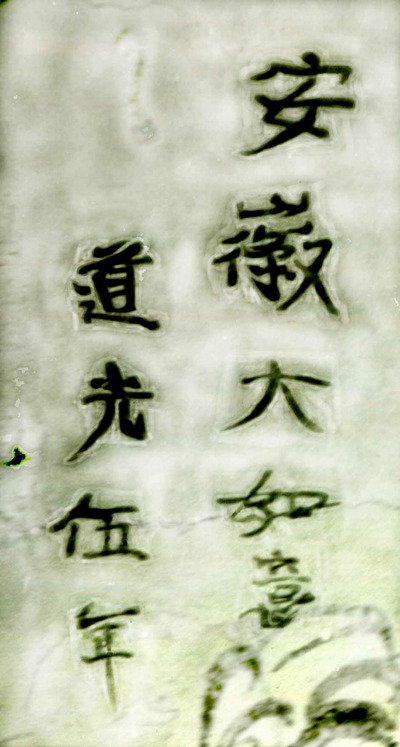 安徽大如意
道光伍年